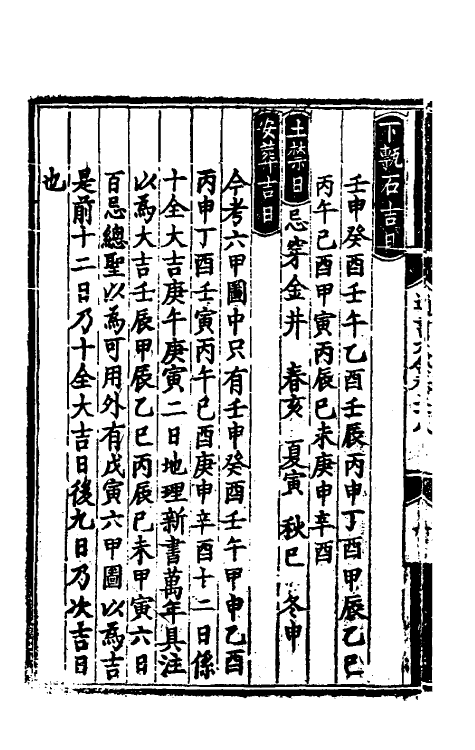 下甎石吉日
壬申癸酉壬午乙酉壬辰丙申丁酉甲辰乙巳
丙午己酉甲寅丙辰己未庚申辛酉
土禁日 忌穿金井 春亥 夏寅 秋巳 冬申
安葬吉日
今考六甲圖中只有壬申癸酉壬午甲申乙酉
丙申丁酉壬寅丙午己酉庚申辛酉十二日係
十全大吉庚午庚寅二日地理新書萬年具注
以為大吉壬辰甲辰乙巳丙辰己未甲寅六日
百忌總聖以為可用外有戊寅六甲圖以為吉
是前十二日乃十全大吉日後九日乃次吉日
也